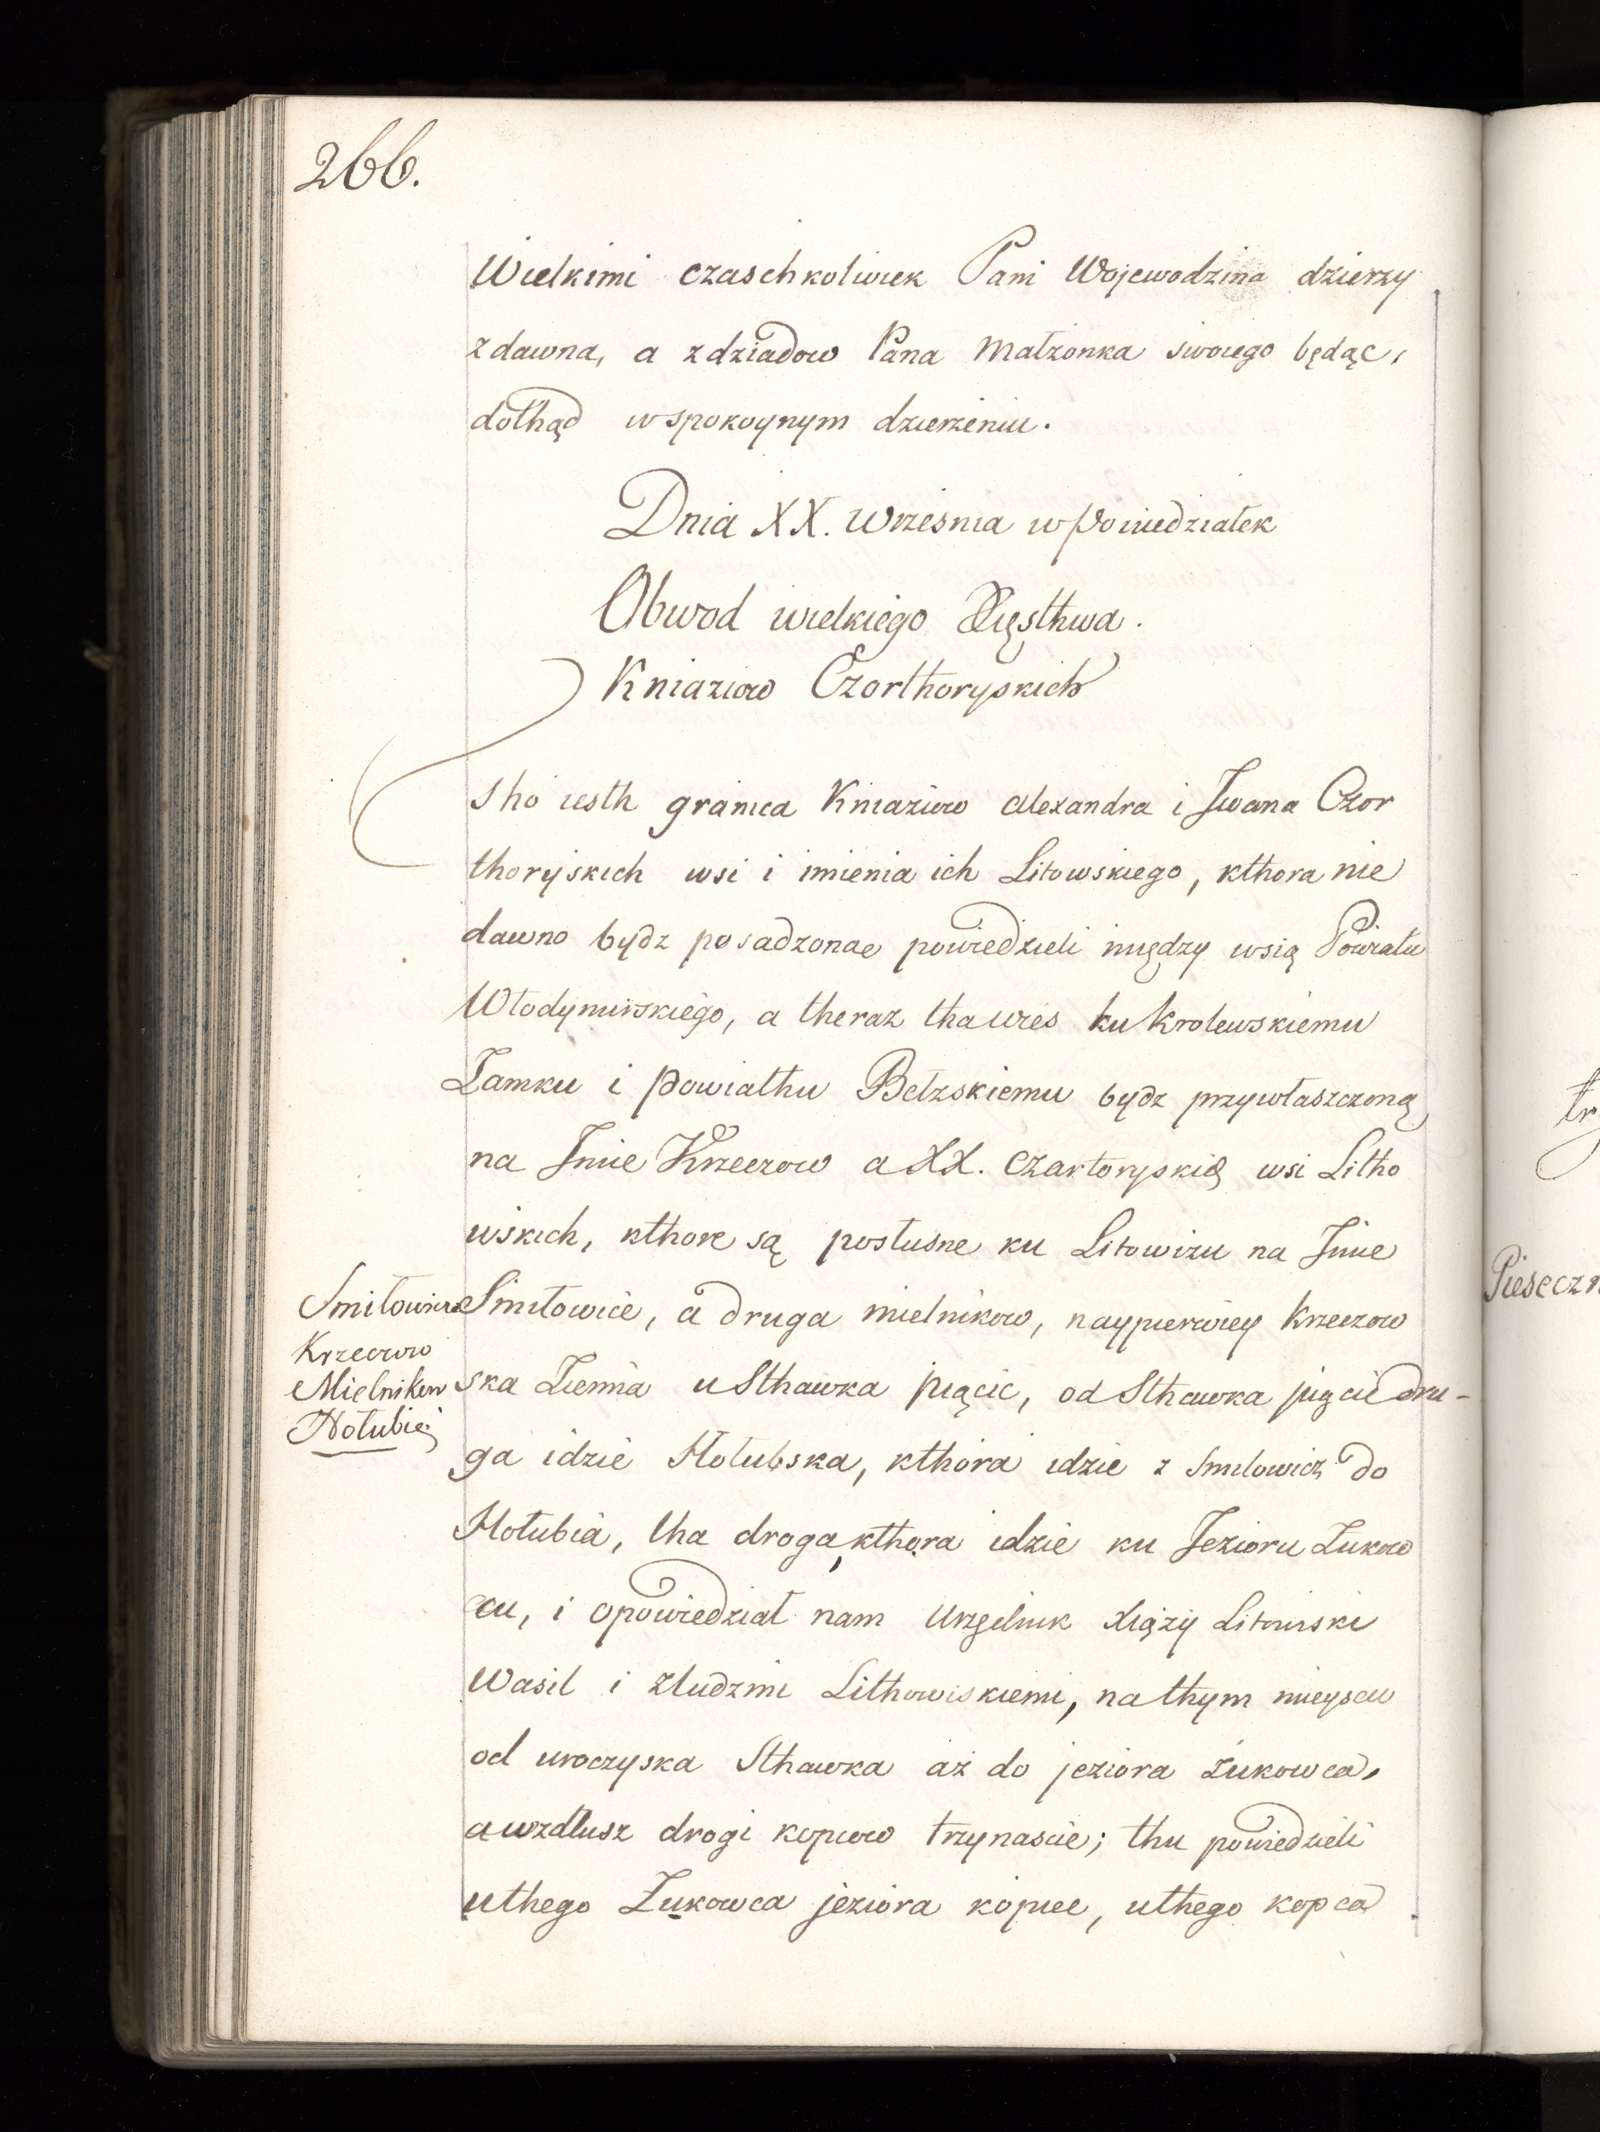 266.
Wielkimi czaschkoliwiek Pani Wojewodzina dzierzy
zdawna, a zdziadow Pana Małzonka swoiego będąc,
dothąd w spokoynym dzierżeniu.
Dnia XX. Wrzesnia w Poniedziałek
Obwod wielkiego Xięsthwa.
Kniaziow Czorthoryskich
Tho iesth granica Kniaziow Alexandra i Iwana Czor
thoryjskich wsi i imienia ich Litowskiego, kthora nie
dawno bydz posadzonae powiedzieli między wsią Powiatu
Włodymirskiego, a theraz tha wies ku Krolewskiemu
Zamku i Powiathu Bełzskiemu bydz przywłaszczoną
na Imie Krzeczow a XX. Czartoryskię wsi Litho
wskich, kthore są posłusne ku Litowizu na Imie
Smiłowice, a druga mielnikow, naypierwiey Krzeczow
ska Ziemia u Sthawka pięcic, od Sthawka pięcie dru-
ga idzie Hołubska, kthora idzie z Smilowicz do
Hołubia, tha droga, kthora idzie ku Jezioru Zukow
cu, i opowiedział nam Urzędnik Xiąży Litowiski
Wasil i zludzmi Lithowiskiemi, na thym mieyscu
od uroczyska Sthawka aż do jeziora Żukowca,
a wzdłusz drogi kopcow trzynascie; thu powiedzieli
uthego Zukowca jeziora kopiec, uthego kopca
Smiłowice
Krzeczow
Mielnikow
Hołubie
Pieseczn